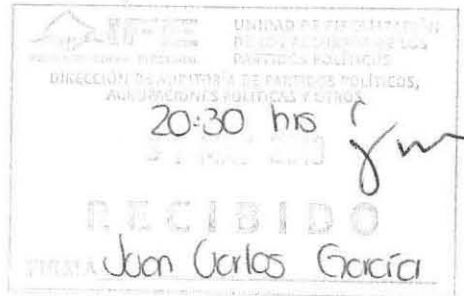 IFE
UNIDAD DE FISCALIZACIÓN
DE LOS RECURSOS DE LOS
PARTIDOS POLÍTICOS
DIRECCIÓN DE AUDITORÍA DE PARTIDOS POLÍTICOS,
AGRUPACIONES POLÍTICAS Y OTROS
20:30 hrs
RECIBIDO
FIRMA Juan Carlos García